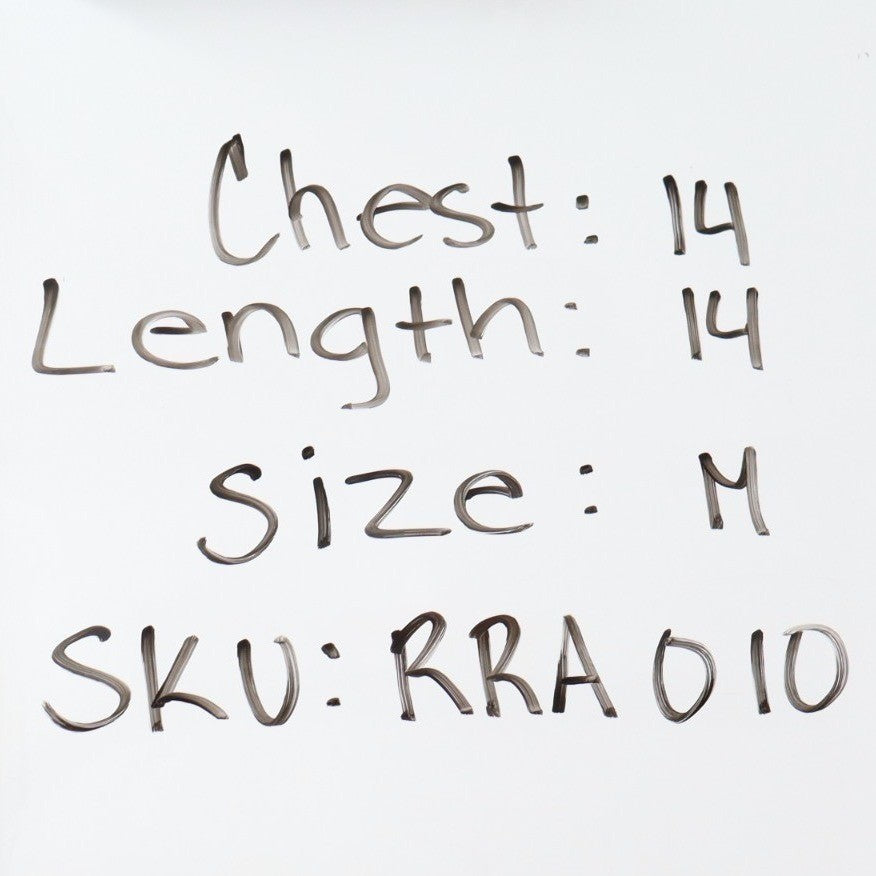 Chest: 14
Length: 14
Size: M
SKU: RRA010